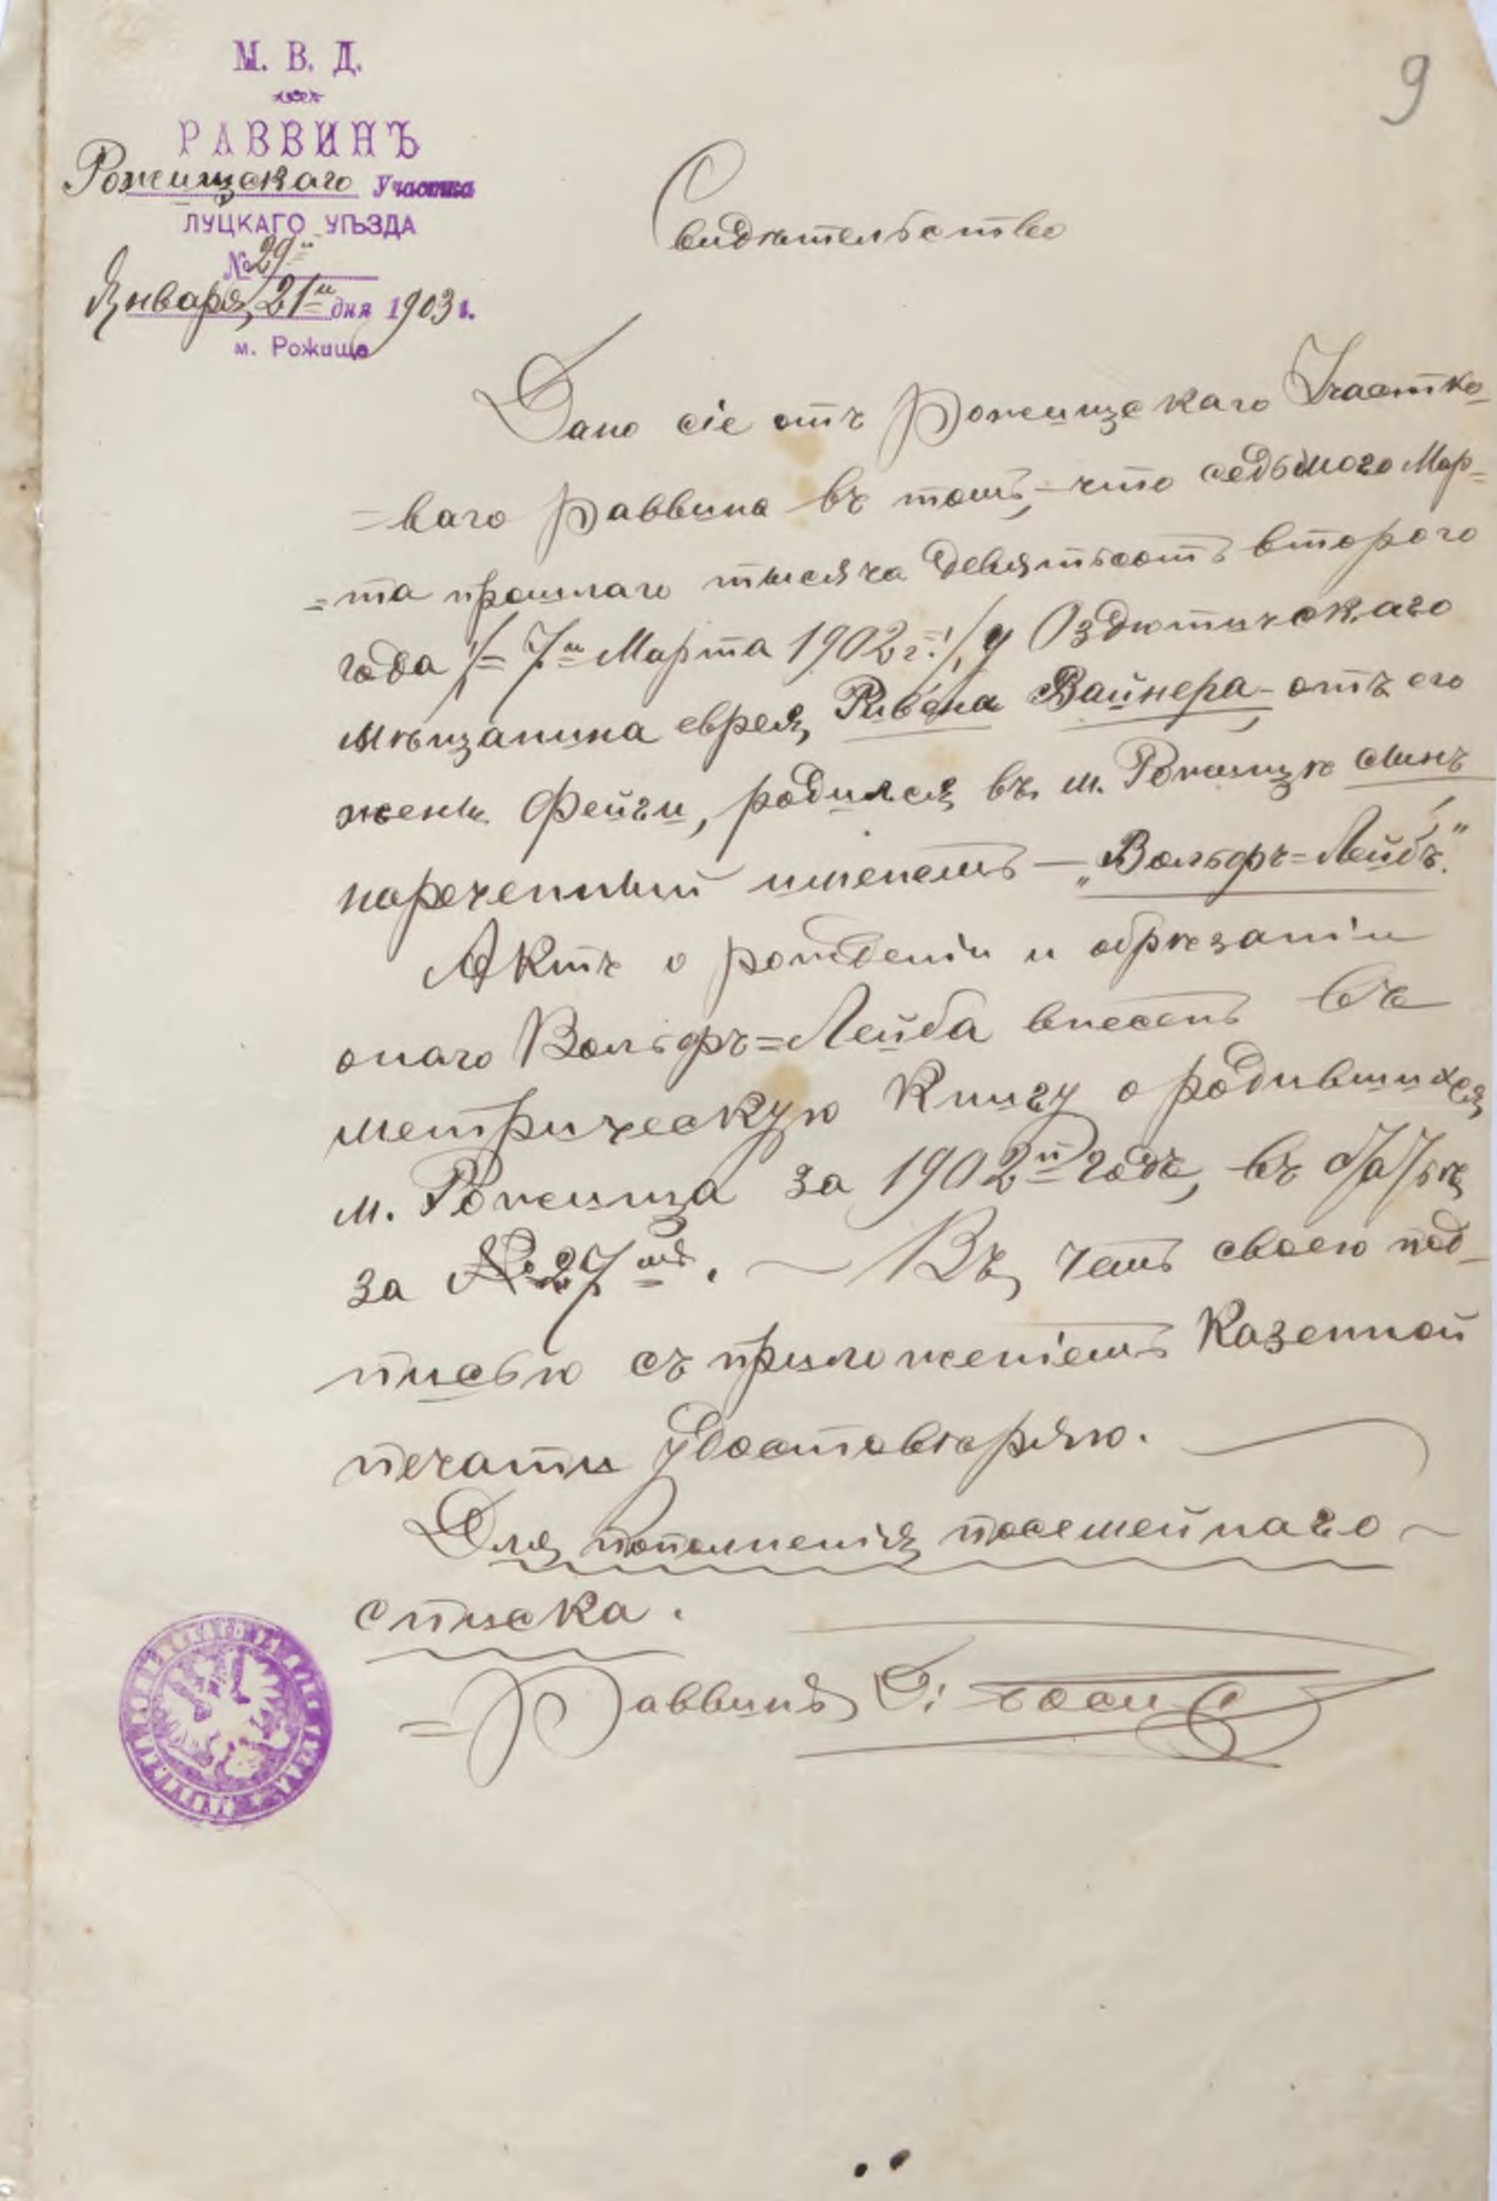 9
М. В. Д.
РАВВИНЪ
Рожищскаго Участка
ЛУЦКАГО УѢЗДА
№ 29й
Января 21го дня 1903 г.
м. Рожище
Свидѣтельство
Дано сіе отъ Рожищскаго Участко-
=ваго Раввина въ томъ, что седьмого Мар=
=та прошлаго тысяча девятьсотъ второго
года /= 7го Марта 1902 г. =/, у Оздютичскаго
мѣщанина еврея, Рувена Вайнера - отъ его
жены Фейги, родился въ м. Рожищѣ сынъ
нареченный именемъ — „Вольфъ=Лейбъ."
Актъ о рожденіи и обрѣзаніи
онаго Вольфъ=Лейба внесенъ въ
метрическую книгу о родившихся
м. Рожища за 1902й годъ, въ
за № 27мъ. — Въ чемъ своею под-
писью съ приложеніемъ Казенной
печати удостовѣряю.
Для пополненія посемейнаго
списка.
=Раввинъ